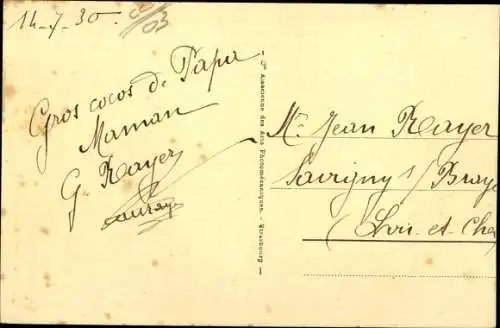 14-7-30.
Gros cocos de Papa
Maman
G Rayer
Cie Alsacienne des Arts Photomécaniques. - Strasbourg
Mr Jean Rayer
Savigny s/ Braye
(Loir-et-Che